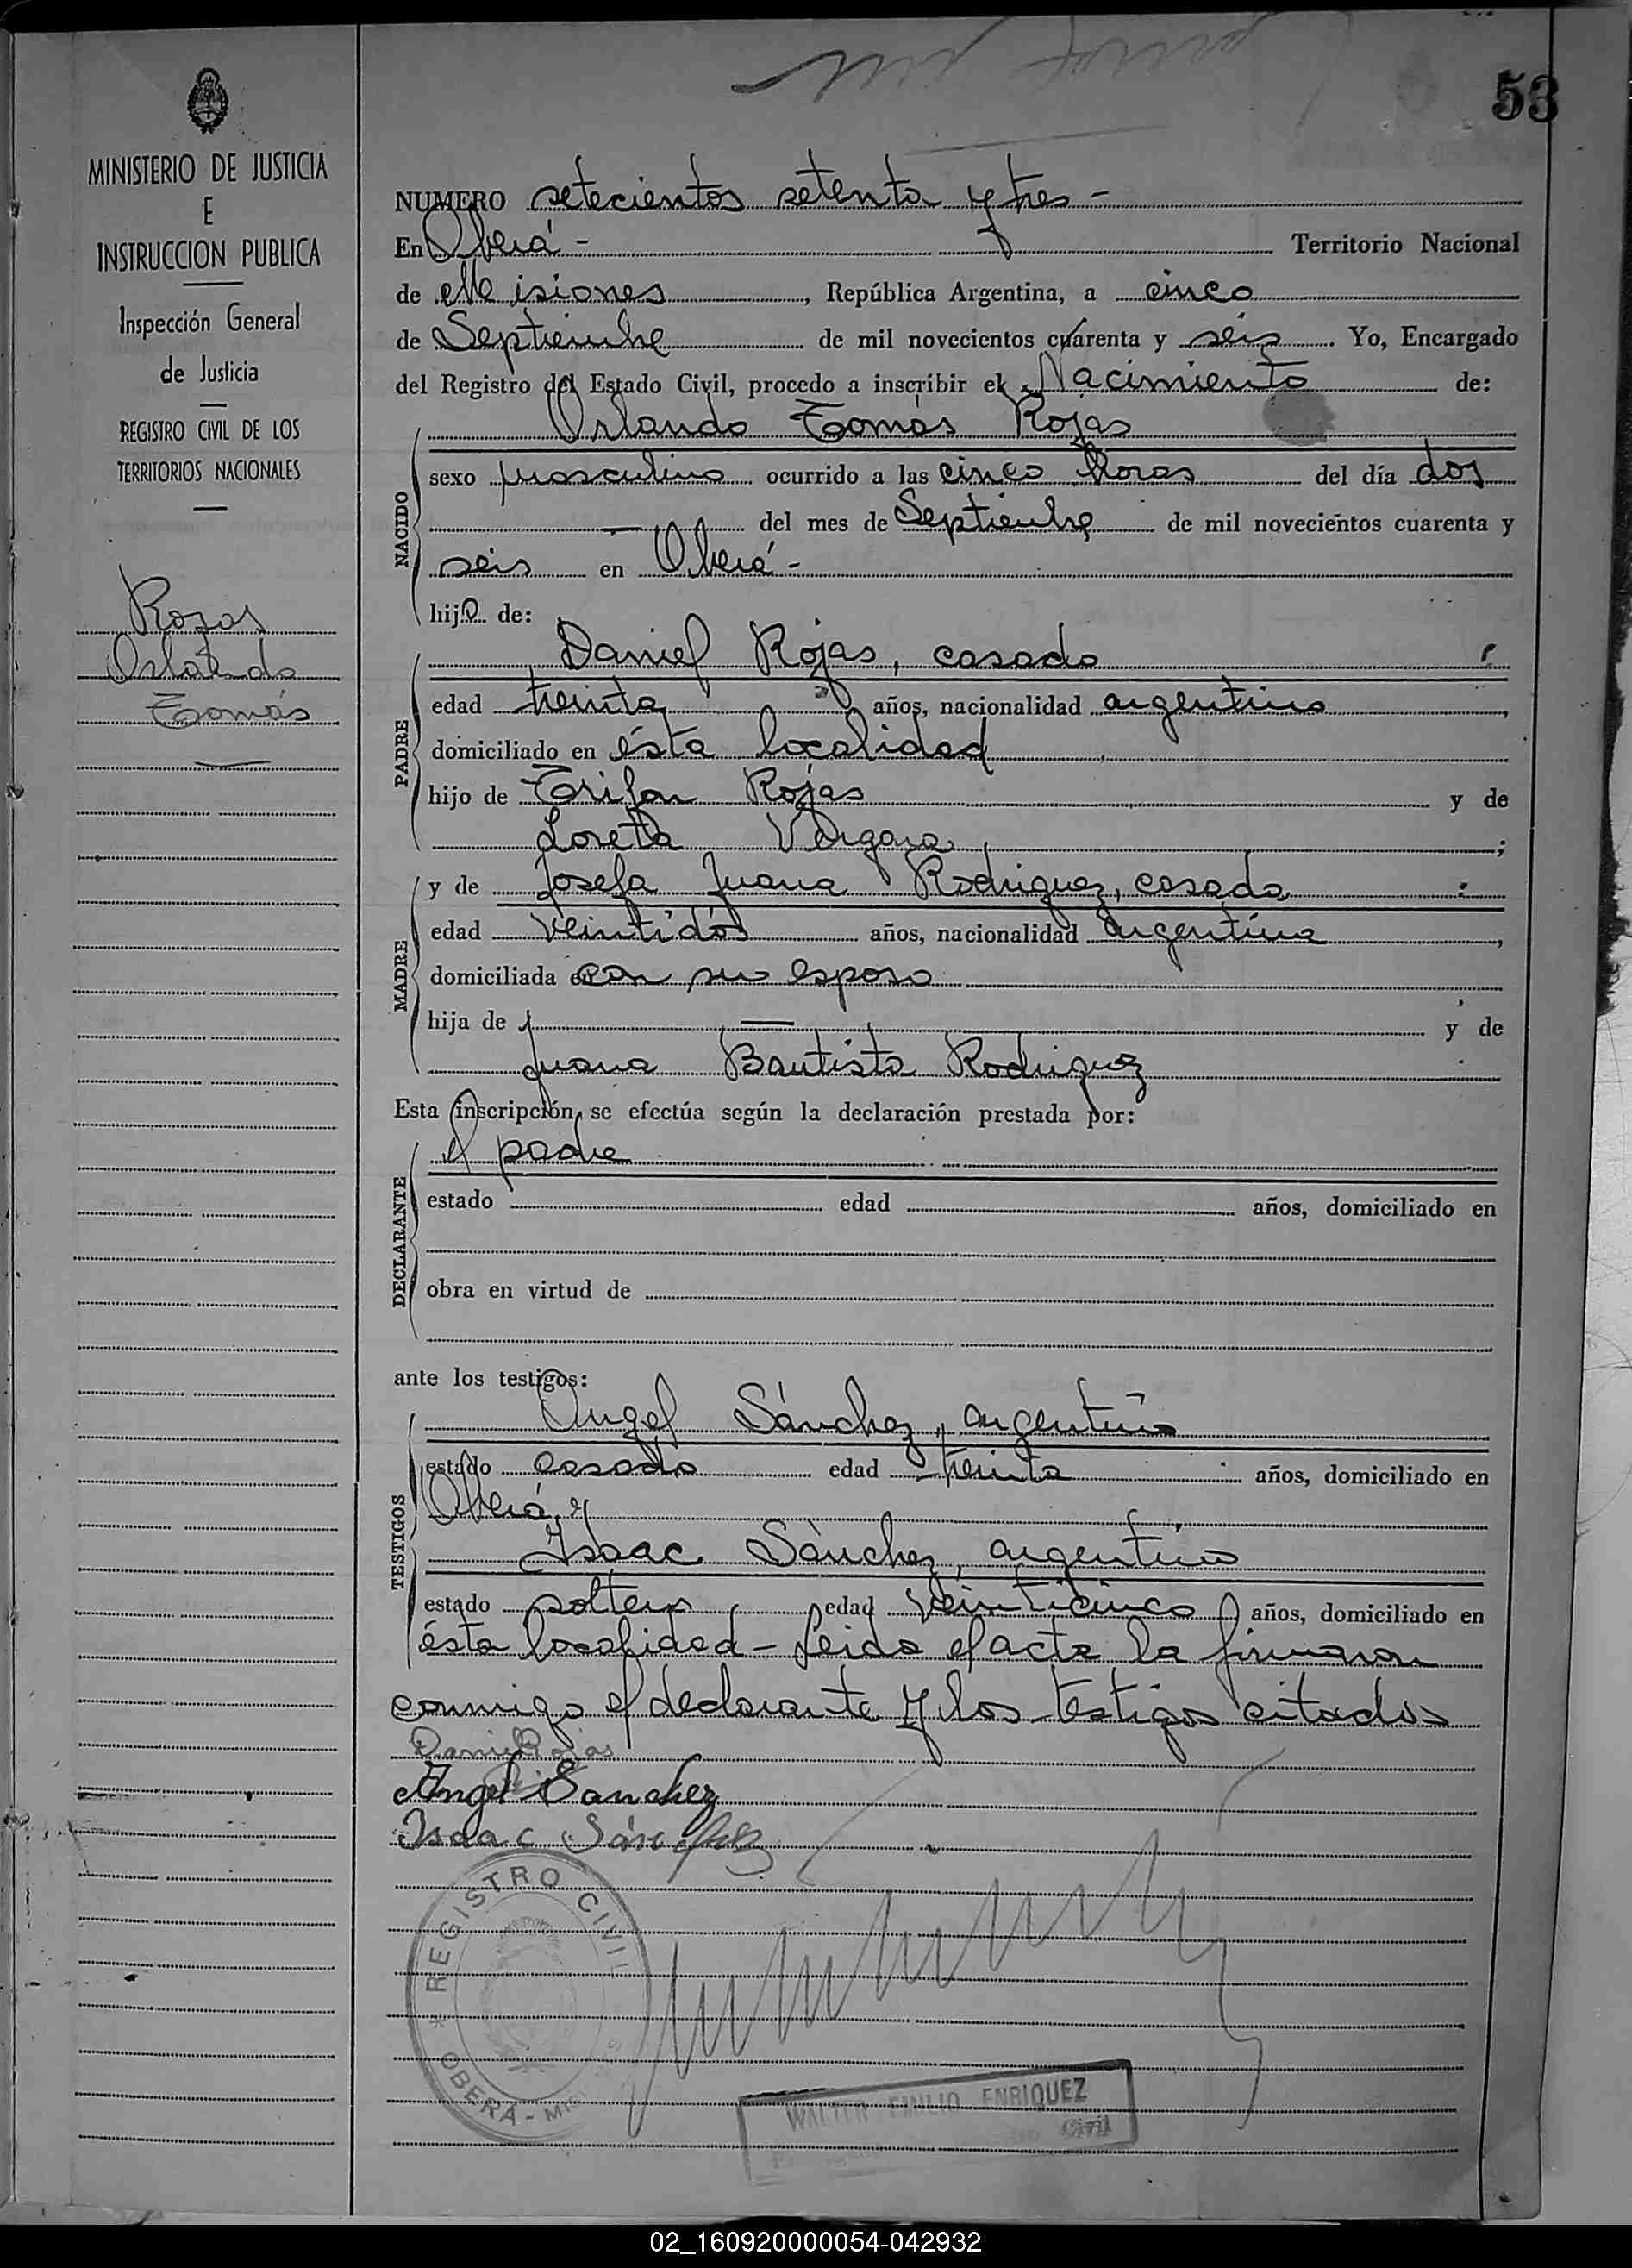 53
MINISTERIO DE JUSTICIA
E
INSTRUCCION PUBLICA
Inspección General
de Justicia
REGISTRO CIVIL DE LOS
TERRITORIOS NACIONALES
Rojas
Orlando
Tomás
NUMERO setecientos setenta y tres -
En Oberá - Territorio Nacional
de Misiones, República Argentina, a cinco
de Septiembre de mil novecientos cuarenta y seis. Yo, Encargado
del Registro del Estado Civil, procedo a inscribir el Nacimiento de:
NACIDO
Orlando Tomás Rojas
sexo masculino ocurrido a las cinco horas del día dos
— del mes de Septiembre de mil novecientos cuarenta y
seis en Oberá -
hijo de:
PADRE
Daniel Rojas, casado
edad treinta años, nacionalidad argentino,
domiciliado en ésta localidad
hijo de Trifon Rojas y de
Loreta Vergara;
MADRE
y de Josefa Juana Rodriguez, casada
edad veintidós años, nacionalidad argentina,
domiciliada en con su esposo
hija de — y de
Juana Bautista Rodriguez
Esta inscripción, se efectúa según la declaración prestada por:
DECLARANTE
el padre
estado edad años, domiciliado en
obra en virtud de
ante los testigos:
TESTIGOS
Angel Sánchez, argentino
estado casado edad treinta años, domiciliado en
Oberá, y
Isaac Sánchez, argentino
estado soltero, edad veinticinco años, domiciliado en
ésta localidad - Leida el acta la firmaron
conmigo el declarante y los testigos citados
Daniel Rojas
Angel Sanchez
Isaac Sánchez
REGISTRO CIVIL
* OBERÁ - MIS
WALTER EMILIO ENRIQUEZ
Civil
02_160920000054-042932